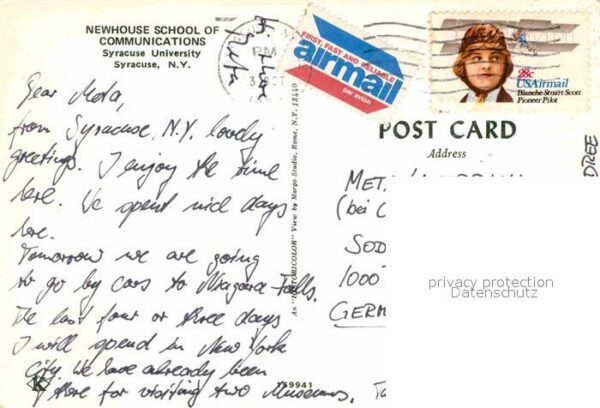 NEWHOUSE SCHOOL OF
COMMUNICATIONS
Syracuse University
Syracuse, N.Y.
PM
FIRST, FAST AND RELIABLE
airmail
par avion
28c
USAirmail
Blanche Stuart Scott
Pioneer Pilot
POST CARD
Address
Dear Meta,
from Syracuse N.Y. lovely
greetings. I enjoy the time
here. We spent nice days
here.
Tomorrow we are going
to go by cars to Niagara Falls.
The last four or three days
I will spend in New York
City. We have already been
there for visiting two Museums.
View by Margo Studio, Rome, N.Y. 13440
META
(bei
SOD
1000
GERM
privacy protection
Datenschutz
K